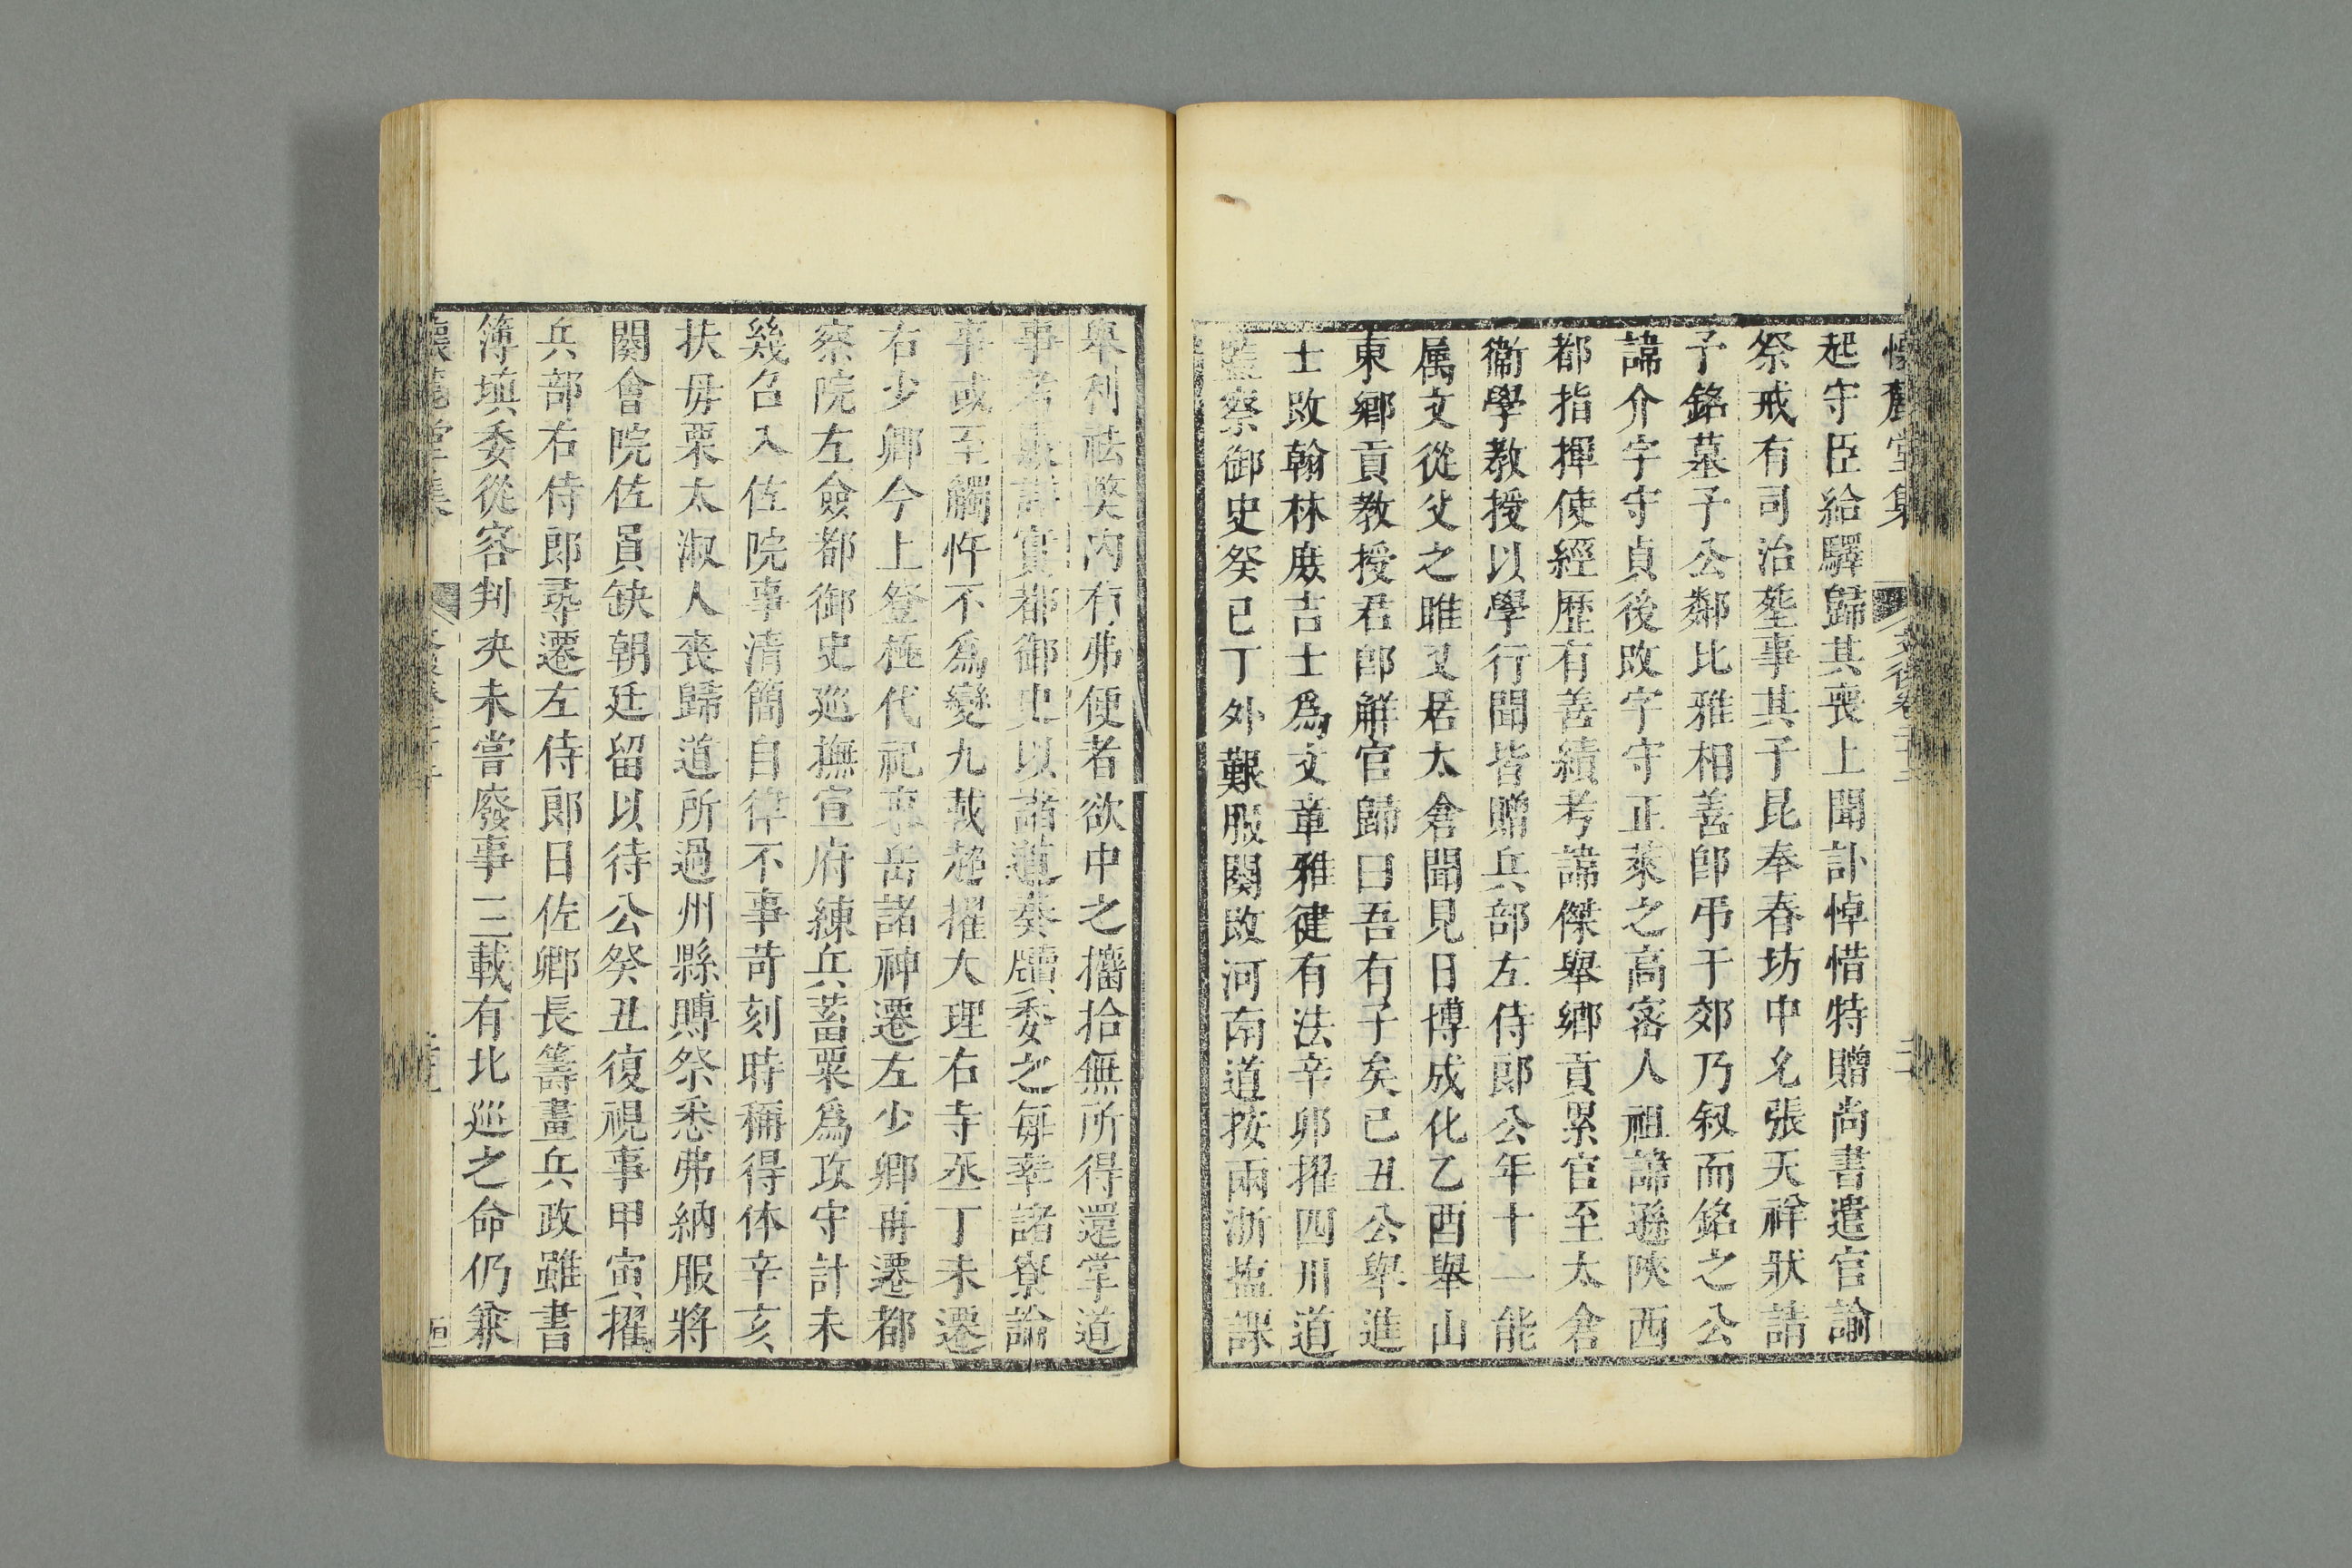 懷麓堂集 文後卷二十三
起守臣給驛歸其喪上聞訃悼惜特贈尚書遣官諭
祭戒有司治塟事其子昆奉春坊中允張天祥狀請
予銘墓子公鄰比雅相善卽弔于郊乃叙而銘之公
諱介字守貞後改字守正萊之高密人祖諱遜陝西
都指揮使經歷有善績考諱傑舉鄉貢累官至太倉
衞學教授以學行聞皆贈兵部左侍郎公年十一能
属文從父之睢又居太倉聞見日博成化乙酉舉山
東鄉貢教授君卽解官歸曰吾有子矣已丑公舉進
士改翰林庶吉士爲文章雅健有法辛卯擢四川道
監察御史癸已丁外艱服闋改河南道按兩浙塩課
舉利祛獘內有弗便者欲中之攟拾無所得還掌道
事考覈詳實都御史以諸道奏牘委之每率諸寮論
事或至觸忤不爲變九載超擢大理右寺丞丁未遷
右少卿今上登極代祀東岳諸神遷左少卿再遷都
察院左僉都御史巡撫宣府練兵蓄粟爲攻守計未
幾召入佐院事清簡自律不事苛刻時稱得体辛亥
扶毋栗太淑人喪歸道所過州縣賻祭悉弗納服將
闋會院佐員缺朝廷留以待公癸丑復視事甲寅擢
兵部右侍郎尋遷左侍郎日佐卿長籌畫兵政雖書
簿填委從容判决未嘗廢事三載有北巡之命仍兼
懷麓堂集